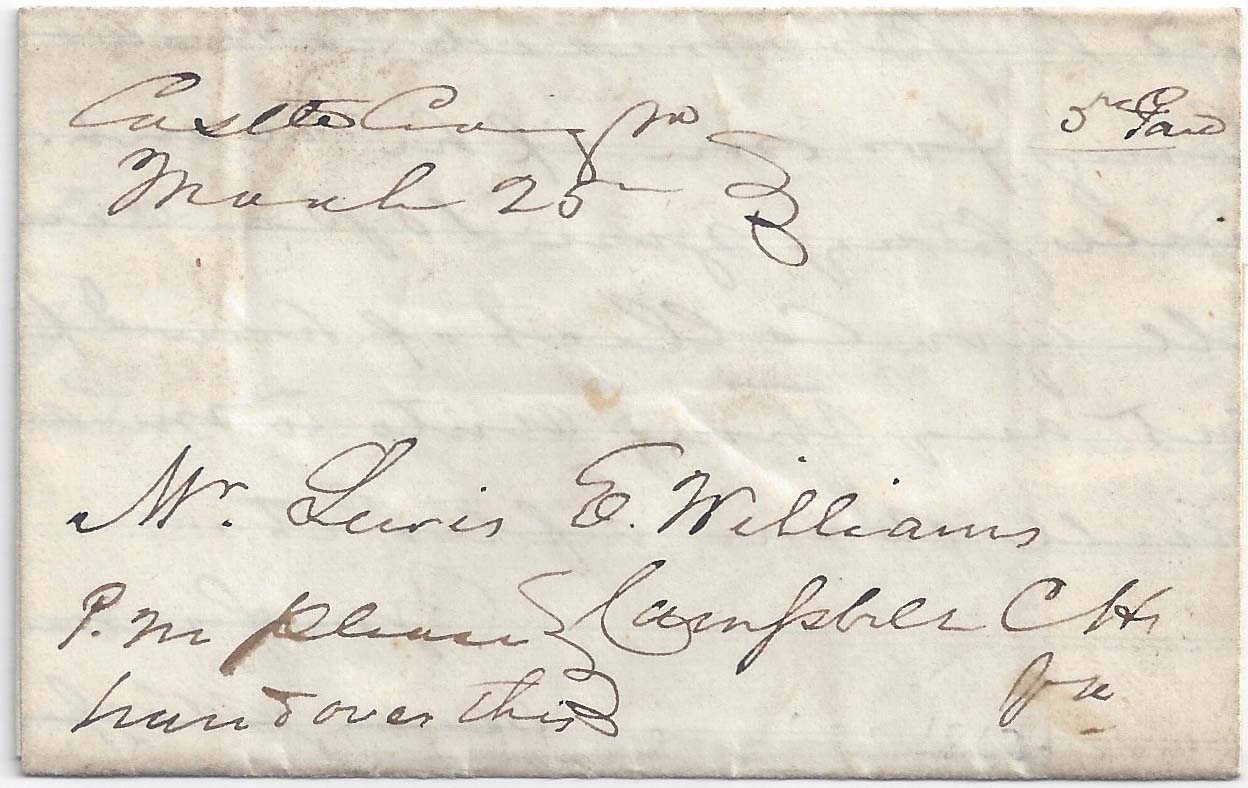 Castle Craig Va
3 Paid
March 25
Mr. Lewis E. Williams
P. M please
Campbell C H
hand over this
Va